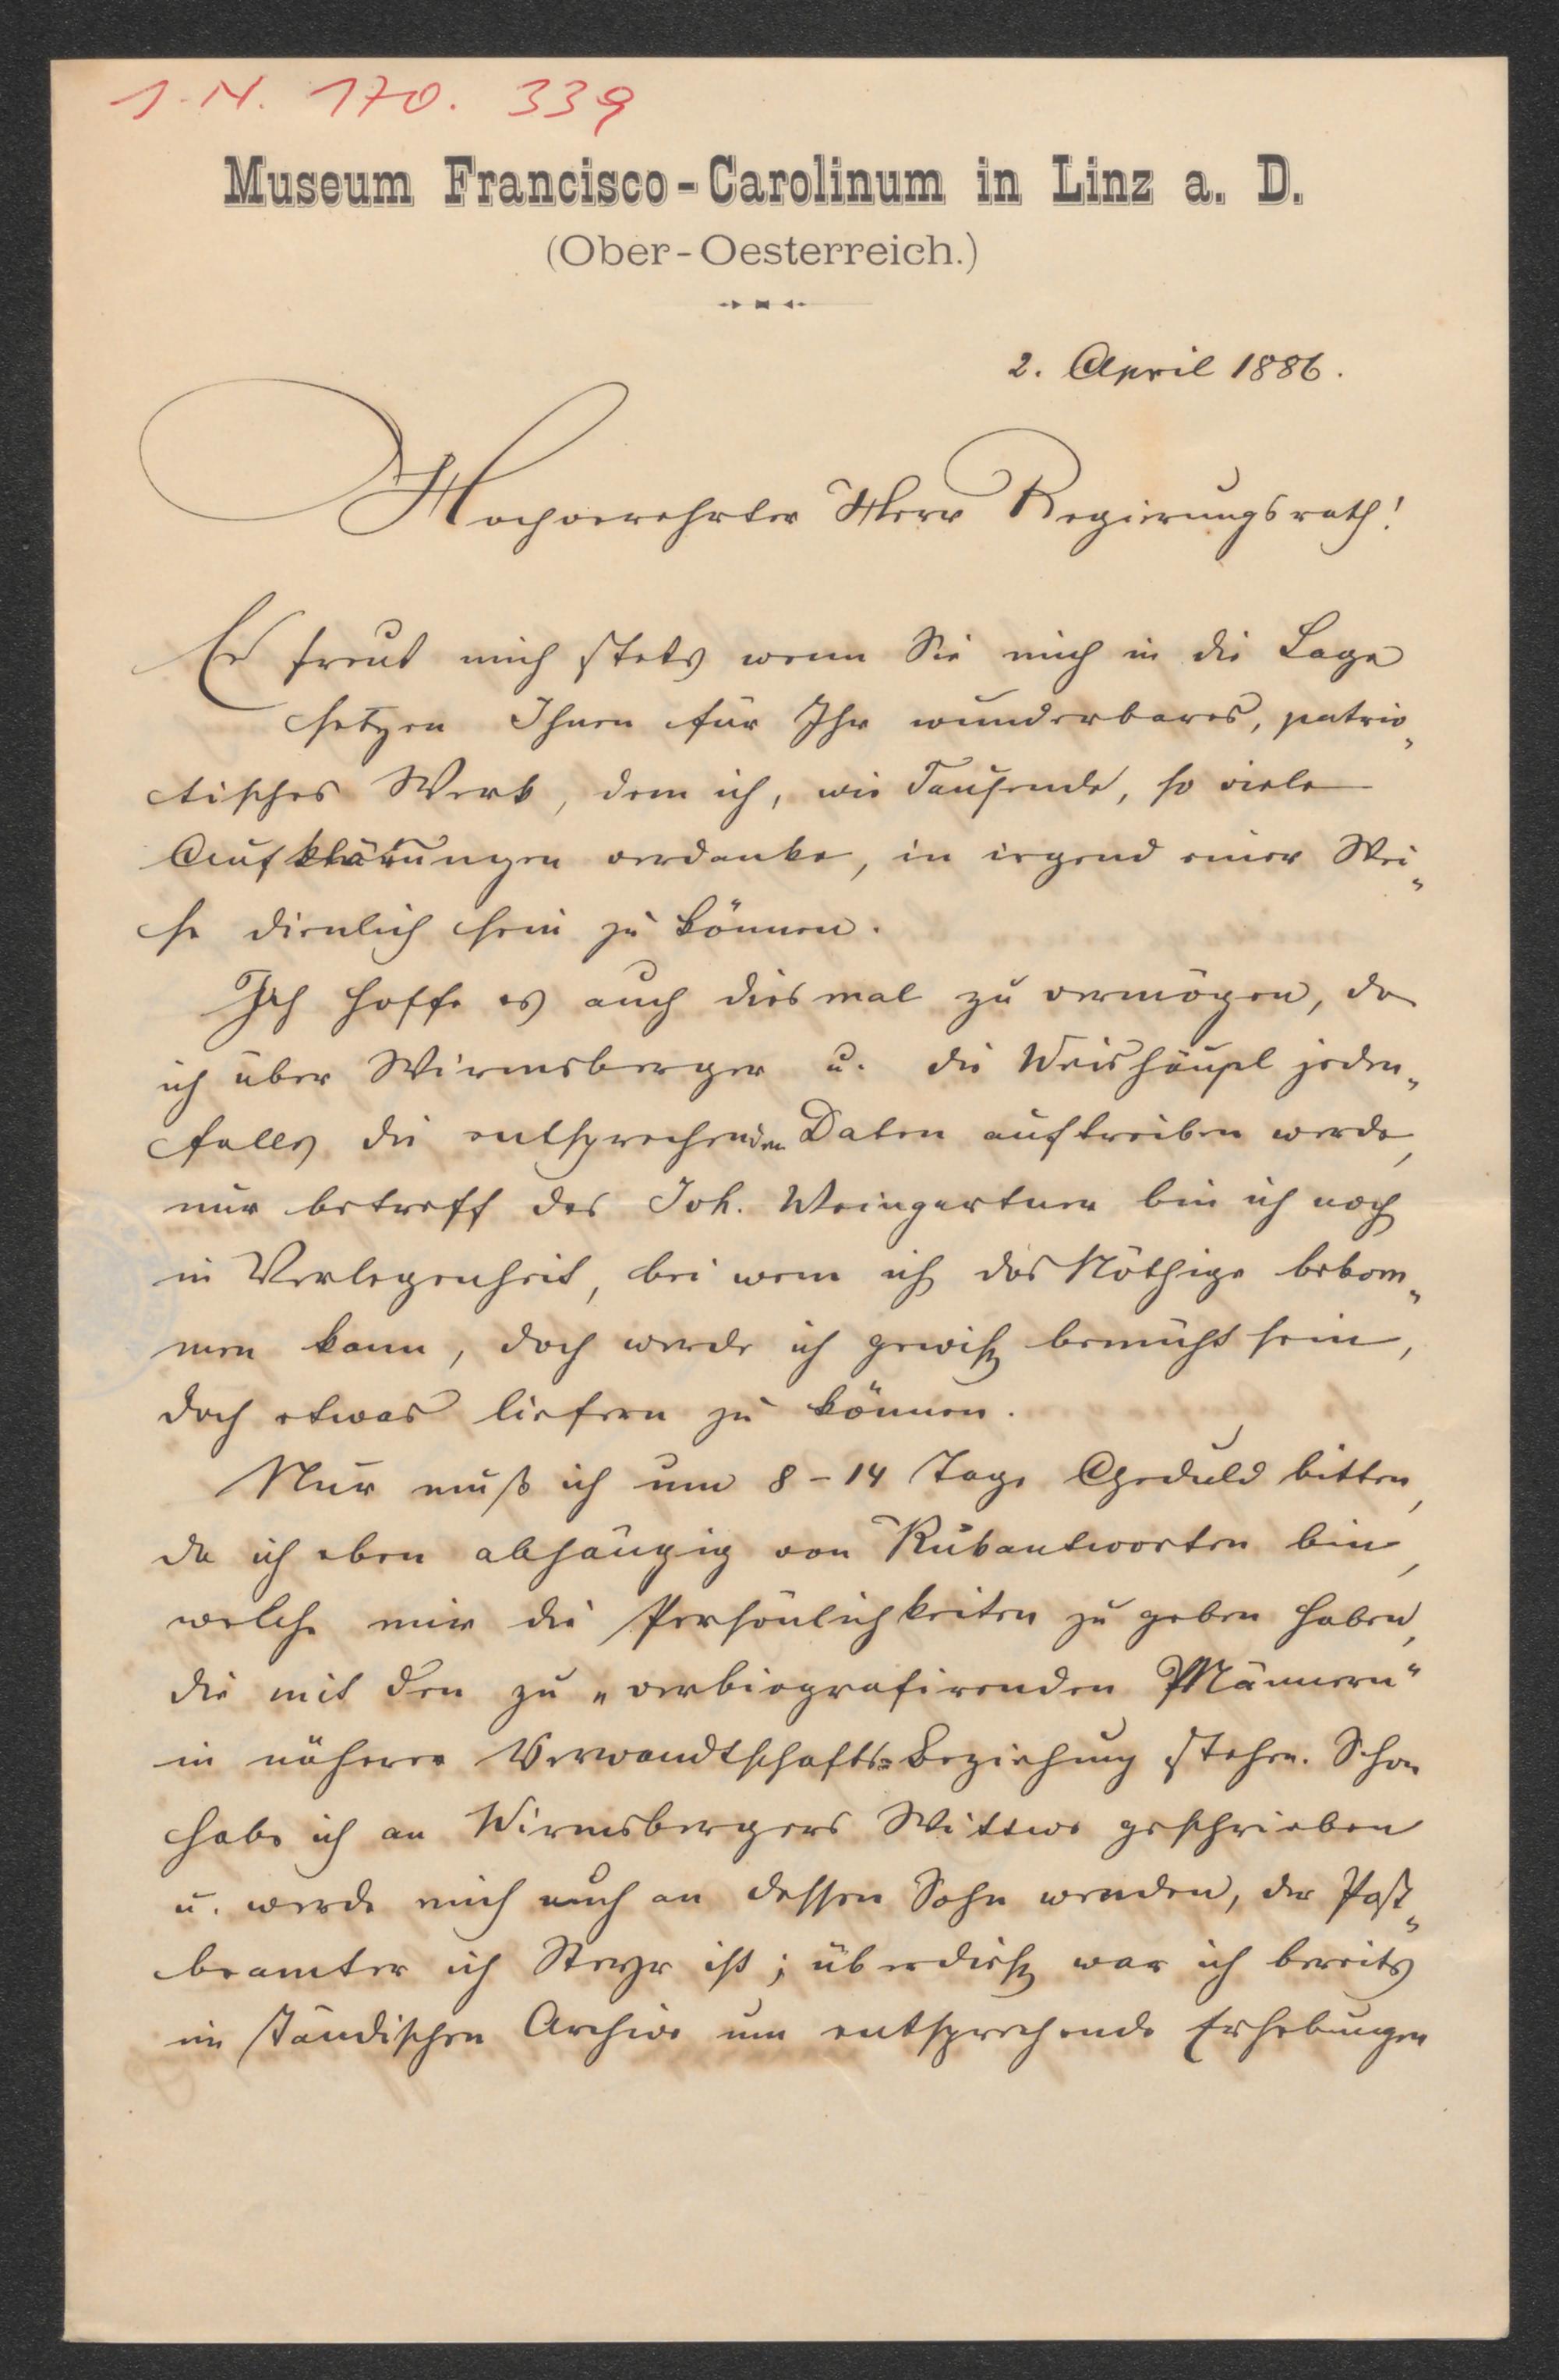 I.N. 170.339
Museum Francisco-Carolinum in Linz a. D.
(Ober-Oesterreich.)
2. April 1886.
Hochverehrter Herr Regierungsrath!
Es freut mich stets wenn Sie mich in die Lage
setzen Ihnen für Ihr wunderbares, patrio„
tisches Werk, dem ich, wie Tausende, so viele
Aufklärungen verdanke, in irgend einer Wei„
se dienlich sein zu können.
Ich hoffe es auch diesmal zu vermögen, da
ich über Wirmsberger u. die Weishäupl jeden„
falls die entsprechenden Daten auftreiben werde,
nur betreff des Joh. Weingartner bin ich noch
in Verlegenheit, bei wem ich das Nöthige bekom„
men kann, doch werde ich gewiß bemüht sein,
doch etwas liefern zu können.
Nur muß ich um 8-14 Tage Geduld bitten,
da ich eben abhängig von Rükantworten bin,
welche mir die Persönlichkeiten zu geben haben,
die mit den zu „verbiografirenden Männern“
in näherer Verwandtschafts-Beziehung stehen. Schon
habe ich an Wirmsbergers Wittwe geschrieben
u. werde mich auch an dessen Sohn wenden, der Post„
beamter ich Steyr ist; überdieß war ich bereits
im ständischen Archive um entsprechende Erhebungen